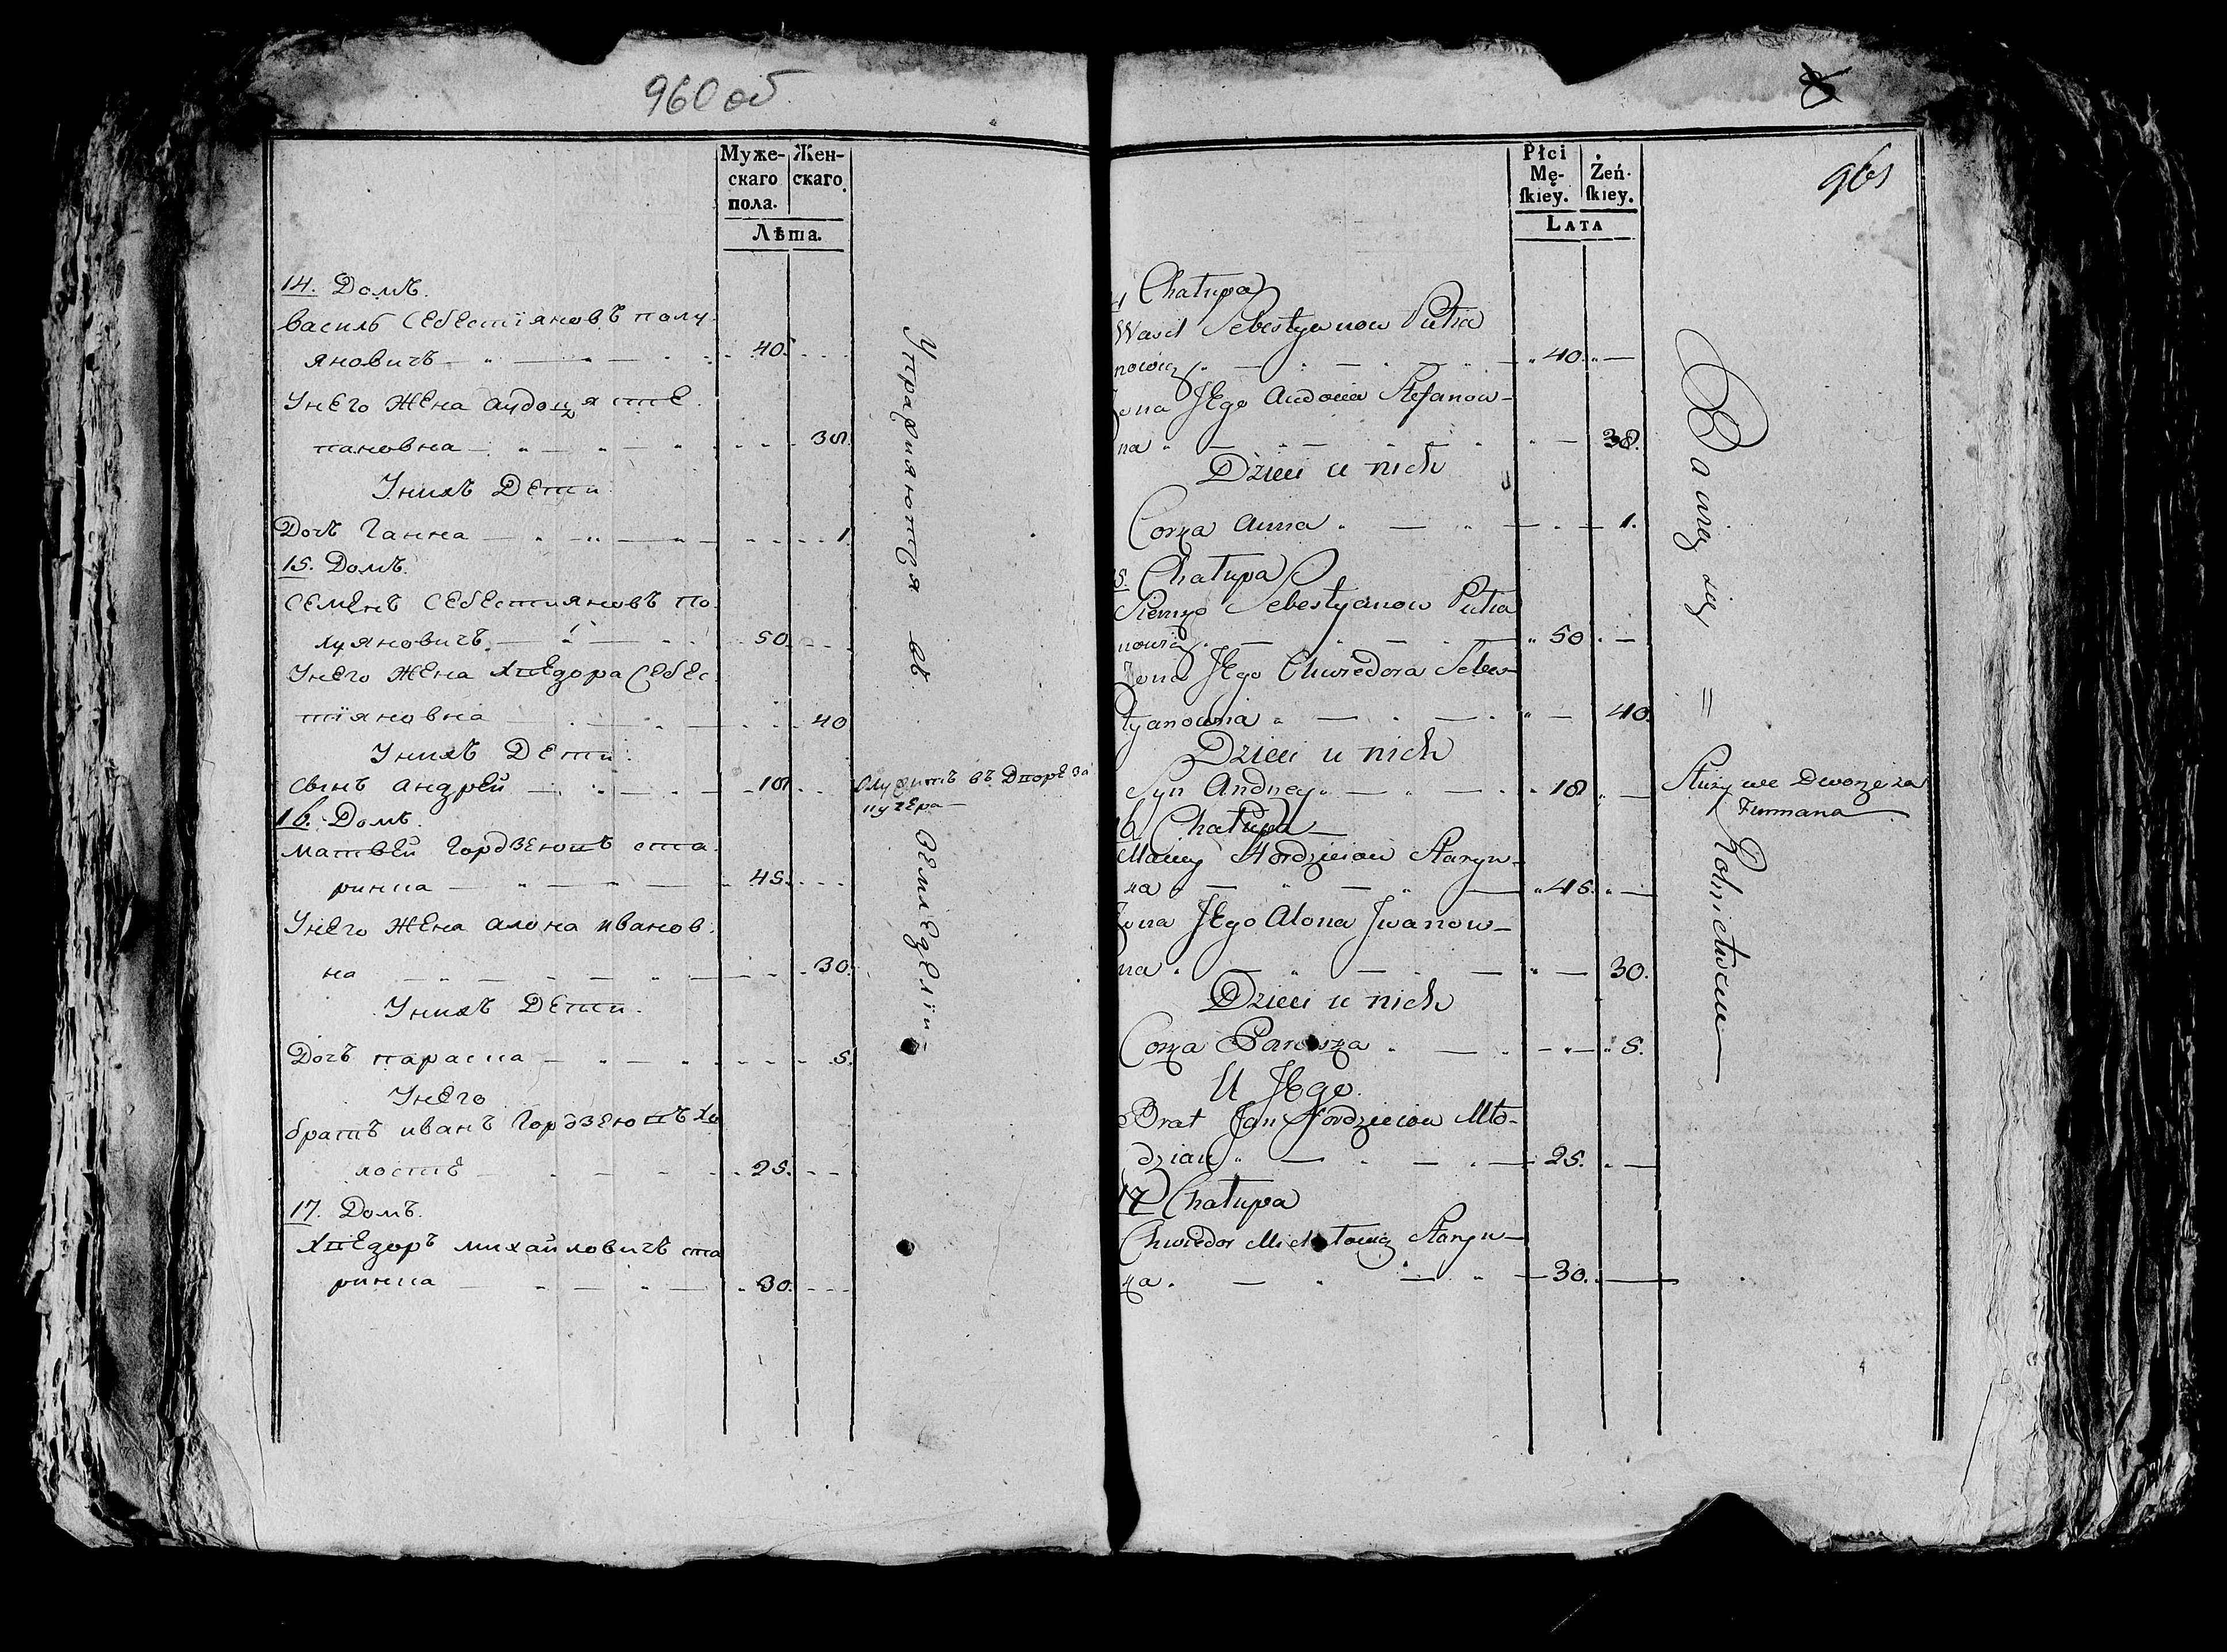 960 об
Муже-
скаго
пола.
Жен-
скаго.
Лѣта.
14. Домъ.
василь Себестіяновъ полу
яновичъ 40.
Унего жена аудоця сте
пановна 38.
Унихъ Дети
Дочъ Ганна 1
15. Домъ.
Семенъ Себестияновъ По
луяновичъ. 50.
Унего жена хведора Себес
тіяновна 40
Унихъ Дети.
Сынъ андрей 18
16. Домъ.
матвей Гордзеювъ ста
ринка 45.
Унего жена алона иванов
на 30.
Унихъ Дети.
Дочъ параска 5.
Унего
братъ иванъ Гордзеювъ Хо
лостъ 25.
17. Домъ.
хведоръ михайловичъ ста
ринка 30.
Упражняются въ
Служитъ въ Дворе За
кучера
Земледелiи
8
961
Płci
Mę-
ſkiey.
Żeń-
ſkiey.
LATA
Chałupa
Wasil Sebestyanow Putia
nowicz 40.
Żona Jego Audocia Stefanow-
na 38.
Dzieci u nich
Corka Anna 1.
15. Chałupa
Siemżo Sebestyanow Putia
nowicz 50
Żona Jego Chwiedora Sebes-
tyanowna 40.
Dzieci u nich
Syn Andrey 18
16 Chałupa
Maciey Hordzieiow Staryn-
ka 45.
Żona Jego Alona Iwanow-
na 30.
Dzieci u nich
Corka Paraska 5.
U Jego
Brat Jan Hordzieiow Mło-
dzian 25.
17 Chałupa
Chwiedor Michałowicz Staryn-
ka 30.
Bawią się = Rolnictwem
Służy we Dworze za
Furmana